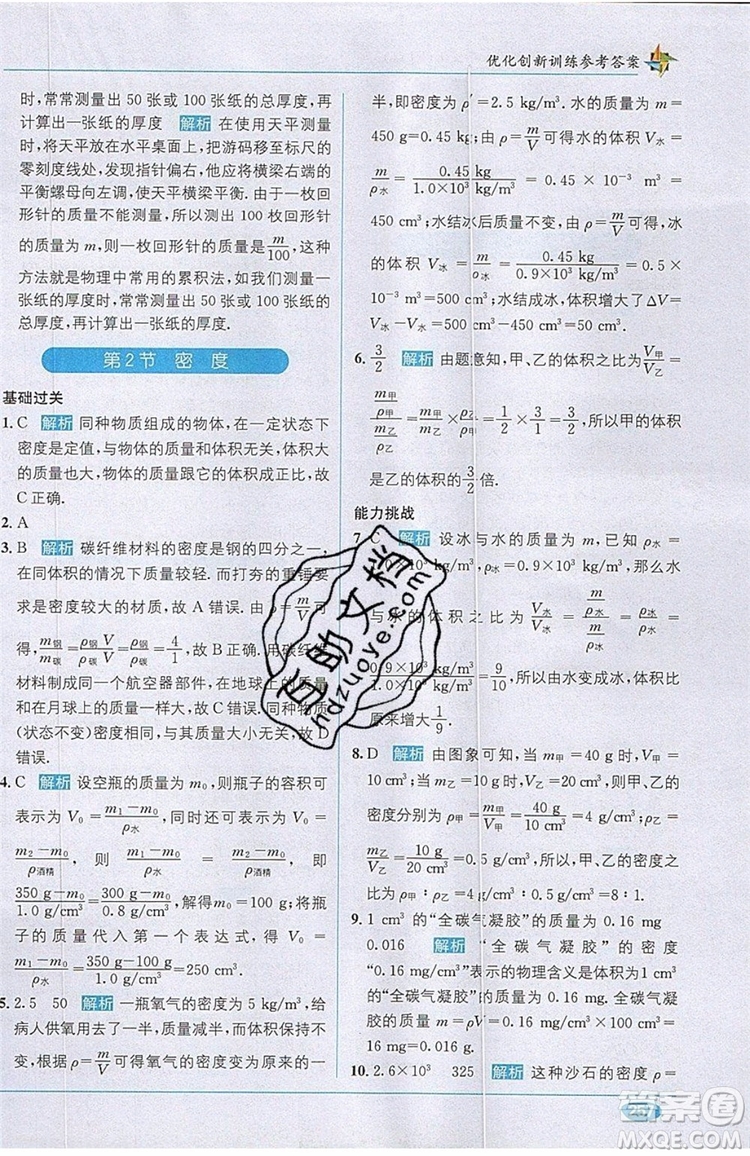 优化创新训练参考答案
时,常常测量出 50 张或 100 张纸的总厚度,再
计算出一张纸的厚度 解析 在使用天平测量
时,将天平放在水平桌面上,把游码移至标尺的
零刻度线处,发现指针偏右,他应将横梁右端的
平衡螺母向左调,使天平横梁平衡.由于一枚回
形针的质量不能准确测量,所以测出 100 枚回形针
的质量为 m,则一枚回形针的质量为 m/100,这种
方法就是物理中常用的累积法,如我们测量一
张纸的厚度时,常常测量出 50 张或 100 张纸的
总厚度,再计算出一张纸的厚度.
第2节 密 度
基础过关
1. C 解析 同种物质组成的物体,在一定状态下
密度是定值,与物体的质量和体积无关,体积大
的质量也大,物体的质量跟它的体积成正比,故
C 正确.
2. A
3. B 解析 碳纤维材料的密度是钢的四分之一,
在同体积的情况下质量较轻.而打夯的重锤要
求是密度较大的材质,故 A 错误.由 ρ=m/V 可
得,m钢/m碳=ρ钢V/ρ碳V=ρ钢/ρ碳=4/1,故 B 正确.用碳纤维
材料制成同一个航空器部件,在地球上的质量
与在月球上的质量一样大,故 C 错误.同种物质
(状态不变)密度相同,与质量无关,故 D
错误.
4. C 解析 设空瓶的质量为 m₀,则瓶子的容积可
表示为 V₀=(m₁−m₀)/ρ水,同时还可表示为 V₀=
(m₂−m₀)/ρ酒精,则 (m₁−m₀)/ρ水=(m₂−m₀)/ρ酒精,即
(350 g−m₀)/(1.0 g/cm³)=(300 g−m₀)/(0.8 g/cm³),解得 m₀=100 g;将瓶
子的质量代入第一个表达式,可得 V₀=
(m₁−m₀)/ρ水=(350 g−100 g)/(1.0 g/cm³)=250 cm³.
5. 2.5 50 解析 一瓶氧气的密度为 5 kg/m³,给
病人供氧用去了一半,质量减半,而体积保持不
变,根据 ρ=m/V 可得氧气的密度变为原来的一
半,即密度为 ρ′=2.5 kg/m³.水的质量为 m=
450 g=0.45 kg,由 ρ=m/V 可得水的体积 V水=
m/ρ水=0.45 kg/(1.0×10³ kg/m³)=0.45×10⁻³ m³=
450 cm³;水结冰后质量不变,由 ρ=m/V 可得,冰
的体积 V冰=m/ρ冰=0.45 kg/(0.9×10³ kg/m³)=0.5×
10⁻³ m³=500 cm³;水结成冰,体积增大了 ΔV=
V冰−V水=500 cm³−450 cm³=50 cm³.
6. 3/2 解析 由题意知,甲、乙的体积之比为 V甲/V乙=
(m甲/ρ甲)/(m乙/ρ乙)=m甲/m乙×ρ乙/ρ甲=1/2×3/1=3/2,所以甲的体积
是乙的体积的 3/2 倍.
能力挑战
7. C 解析 设冰与水的质量为 m,已知 ρ水=
1.0×10³ kg/m³,ρ冰=0.9×10³ kg/m³,那么水
与冰的体积之比为 V水/V冰=(m/ρ水)/(m/ρ冰)=ρ冰/ρ水=
(0.9×10³ kg/m³)/(1.0×10³ kg/m³)=9/10,所以由水变成冰,体积比
原来增大 1/9.
8. D 解析 由图象可知,当 m甲=40 g 时,V甲=
10 cm³;当 m乙=10 g 时,V乙=20 cm³,则甲、乙的
密度分别为 ρ甲=m甲/V甲=40 g/10 cm³=4 g/cm³,ρ乙=
m乙/V乙=10 g/20 cm³=0.5 g/cm³,所以甲、乙的密度之比
为 4 g/cm³∶0.5 g/cm³=8∶1.
9. 1 cm³ 的“全碳气凝胶”的质量为 0.16 mg
0.016 解析 “全碳气凝胶”的密度
0.16 mg/cm³ 表示的物理含义是体积为 1 cm³
的“全碳气凝胶”的质量为 0.16 mg.质量 m=
ρV=0.16 mg/cm³×100 cm³=16 mg=
0.016 g.
10. 2.6×10³ 325 解析 这种沙石的密度 ρ=
257
百助文档
ydznoye.com
答案圈
MXQE.COM